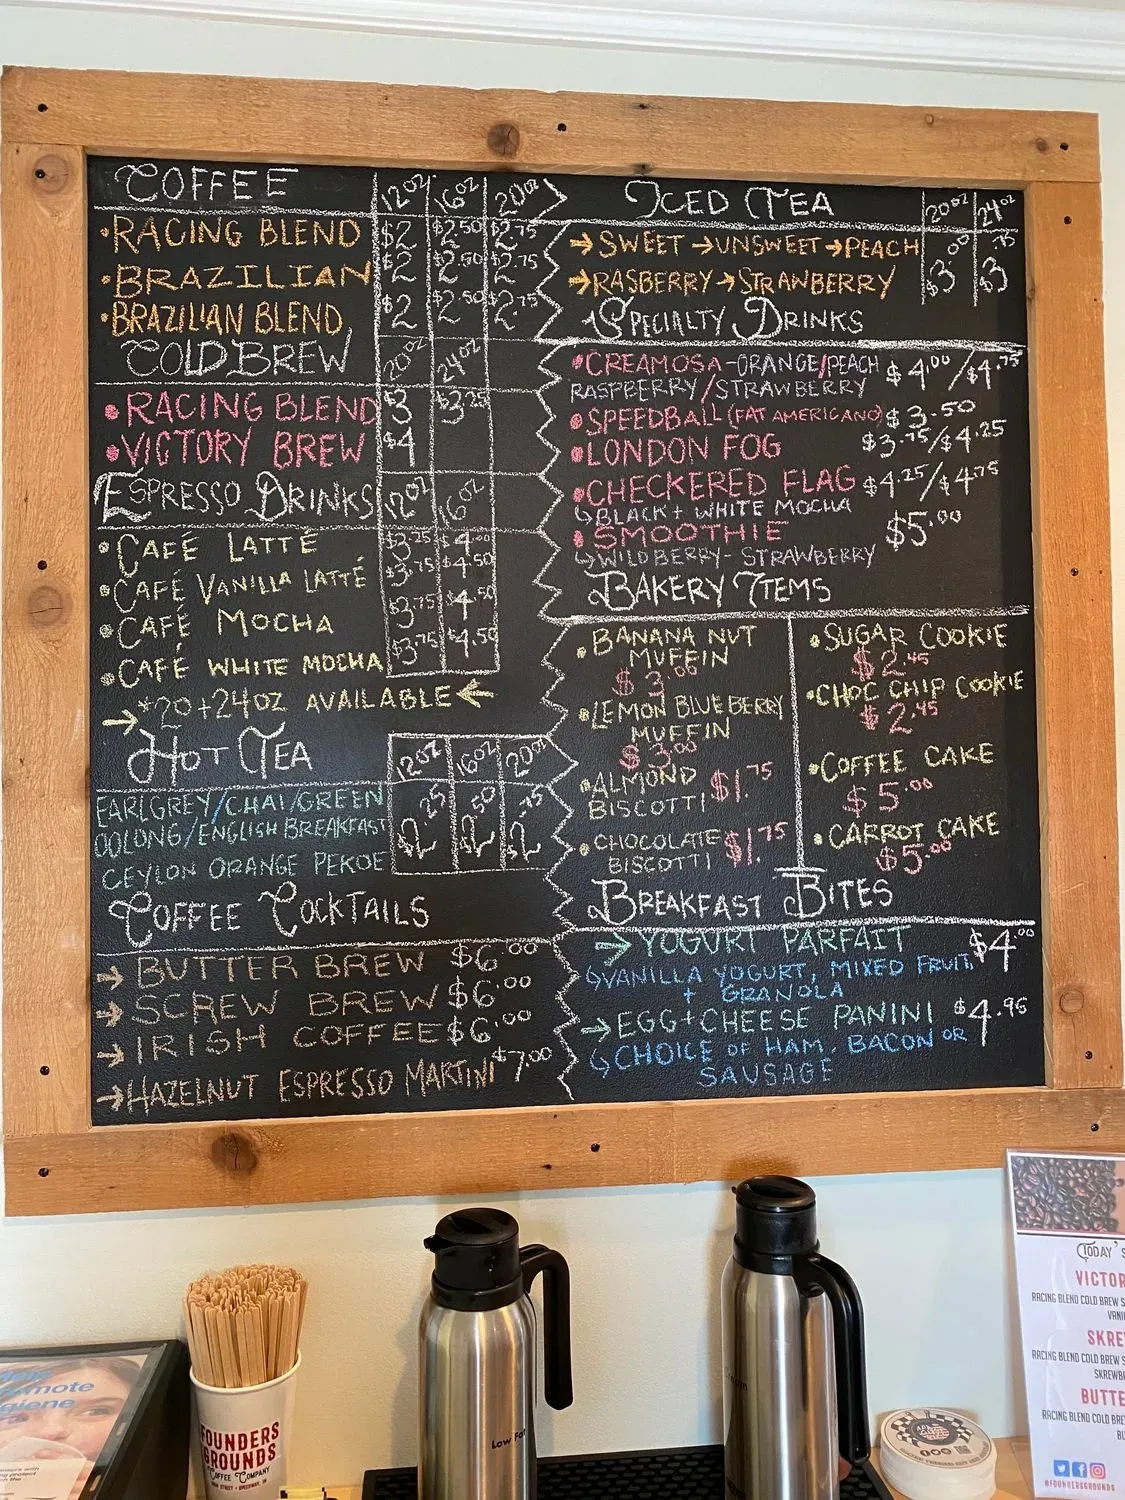 COFFEE 12oz 16oz 20oz
•RACING BLEND $2 $2.50 $2.75
•BRAZILIAN $2 $2.50 $2.75
•BRAZILIAN BLEND $2 $2.50 $2.75
COLD BREW 20oz 24oz
•RACING BLEND $3 $3.25
•VICTORY BREW $4
ESPRESSO DRINKS 12oz 16oz
•CAFÉ LATTÉ $3.25 $4.00
•CAFÉ VANILLA LATTÉ $3.75 $4.50
•CAFÉ MOCHA $3.75 $4.50
•CAFÉ WHITE MOCHA $3.75 $4.50
→*20+24OZ AVAILABLE←
HOT TEA 12oz 16oz 20oz
EARLGREY/CHAI/GREEN
OOLONG/ENGLISH BREAKFAST $2.25 $2.50 $2.75
CEYLON ORANGE PEKOE
COFFEE COCKTAILS
→BUTTER BREW $6.00
→SCREW BREW $6.00
→IRISH COFFEE $6.00
→HAZELNUT ESPRESSO MARTINI $7.00
ICED TEA 20oz 24oz
→SWEET →UNSWEET→PEACH
→RASBERRY→STRAWBERRY $3.00 $3.75
SPECIALTY DRINKS
•CREAMOSA-ORANGE/PEACH $4.00/$4.75
RASPBERRY/STRAWBERRY
•SPEEDBALL (FAT AMERICANO) $3.50
•LONDON FOG $3.75/$4.25
•CHECKERED FLAG $4.25/$4.75
↳BLACK+WHITE MOCHA
•SMOOTHIE $5.00
↳WILDBERRY-STRAWBERRY
BAKERY ITEMS
•BANANA NUT
MUFFIN
$3.00
•LEMON BLUEBERRY
MUFFIN
$3.00
•ALMOND
BISCOTTI $1.75
•CHOCOLATE
BISCOTTI $1.75
•SUGAR COOKIE
$2.45
•CHOC CHIP COOKIE
$2.45
•COFFEE CAKE
$5.00
•CARROT CAKE
$5.00
BREAKFAST BITES
→YOGURT PARFAIT $4.00
↳VANILLA YOGURT, MIXED FRUIT
+ GRANOLA
→EGG+CHEESE PANINI $4.95
↳CHOICE OF HAM, BACON OR
SAUSAGE
FOUNDERS
GROUNDS
COFFEE COMPANY
Low Fat
TODAY'S
VICTOR
RACING BLEND COLD BREW S
VANI
SKRE
RACING BLEND COLD BREW S
SKREWB
BUTTE
RACING BLEND COLD BRE
BU
#FOUNDERSGROUNDS